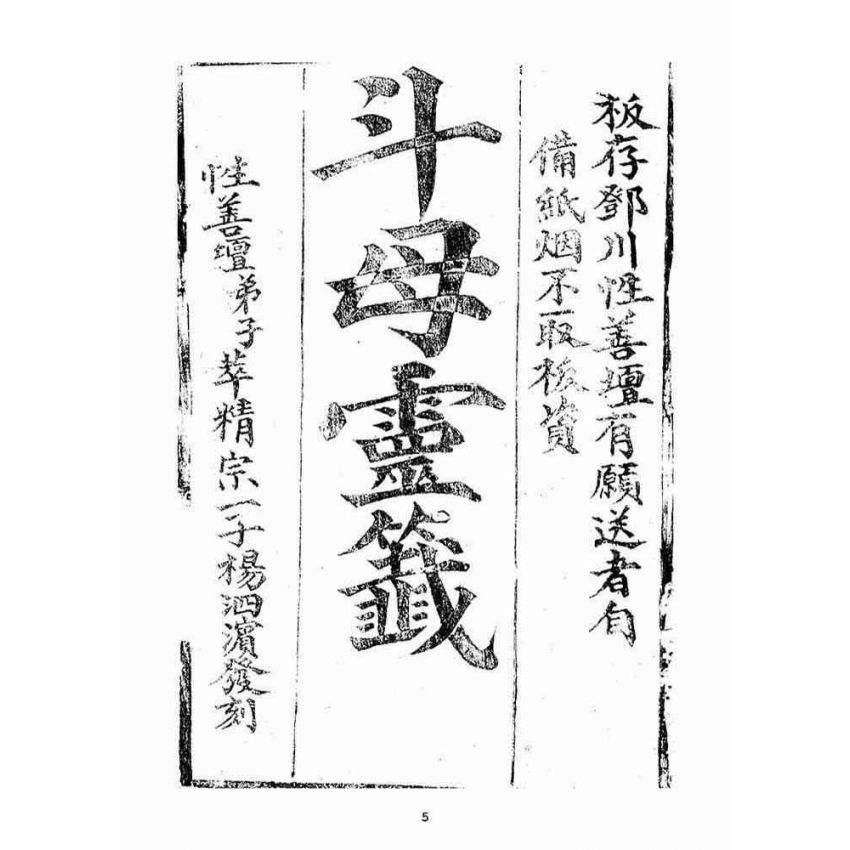 板存鄧川性善壇有願送者自
備紙烟不取板資
斗母靈籤
性善壇弟子萃精宗一子楊泗濵發刻
5